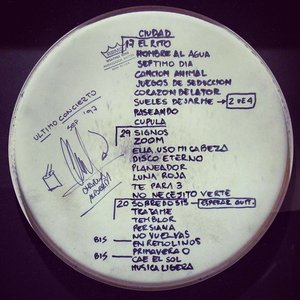 CIUDAD
17 EL RITO
HOMBRE AL AGUA
SEPTIMO DIA
CANCION ANIMAL
JUEGOS DE SEDUCCION
CORAZON DELATOR
SUELES DEJARME → 2 DE 4
PASEANDO
CUPULA
29 SIGNOS
ZOOM
ELLA USO MI CABEZA
DISCO ETERNO
PLANEADOR
LUNA ROJA
TE PARA 3
NO NECESITO VERTE
20 SOBREDOSIS → ESPERAR GUIT.
TRATAME
TEMBLOR
PERSIANA
NO VUELVAS
BIS EN REMOLINOS
PRIMAVERA 0
BIS CAE EL SOL
MUSICA LIGERA
ULTIMO CONCIERTO
SEP '97